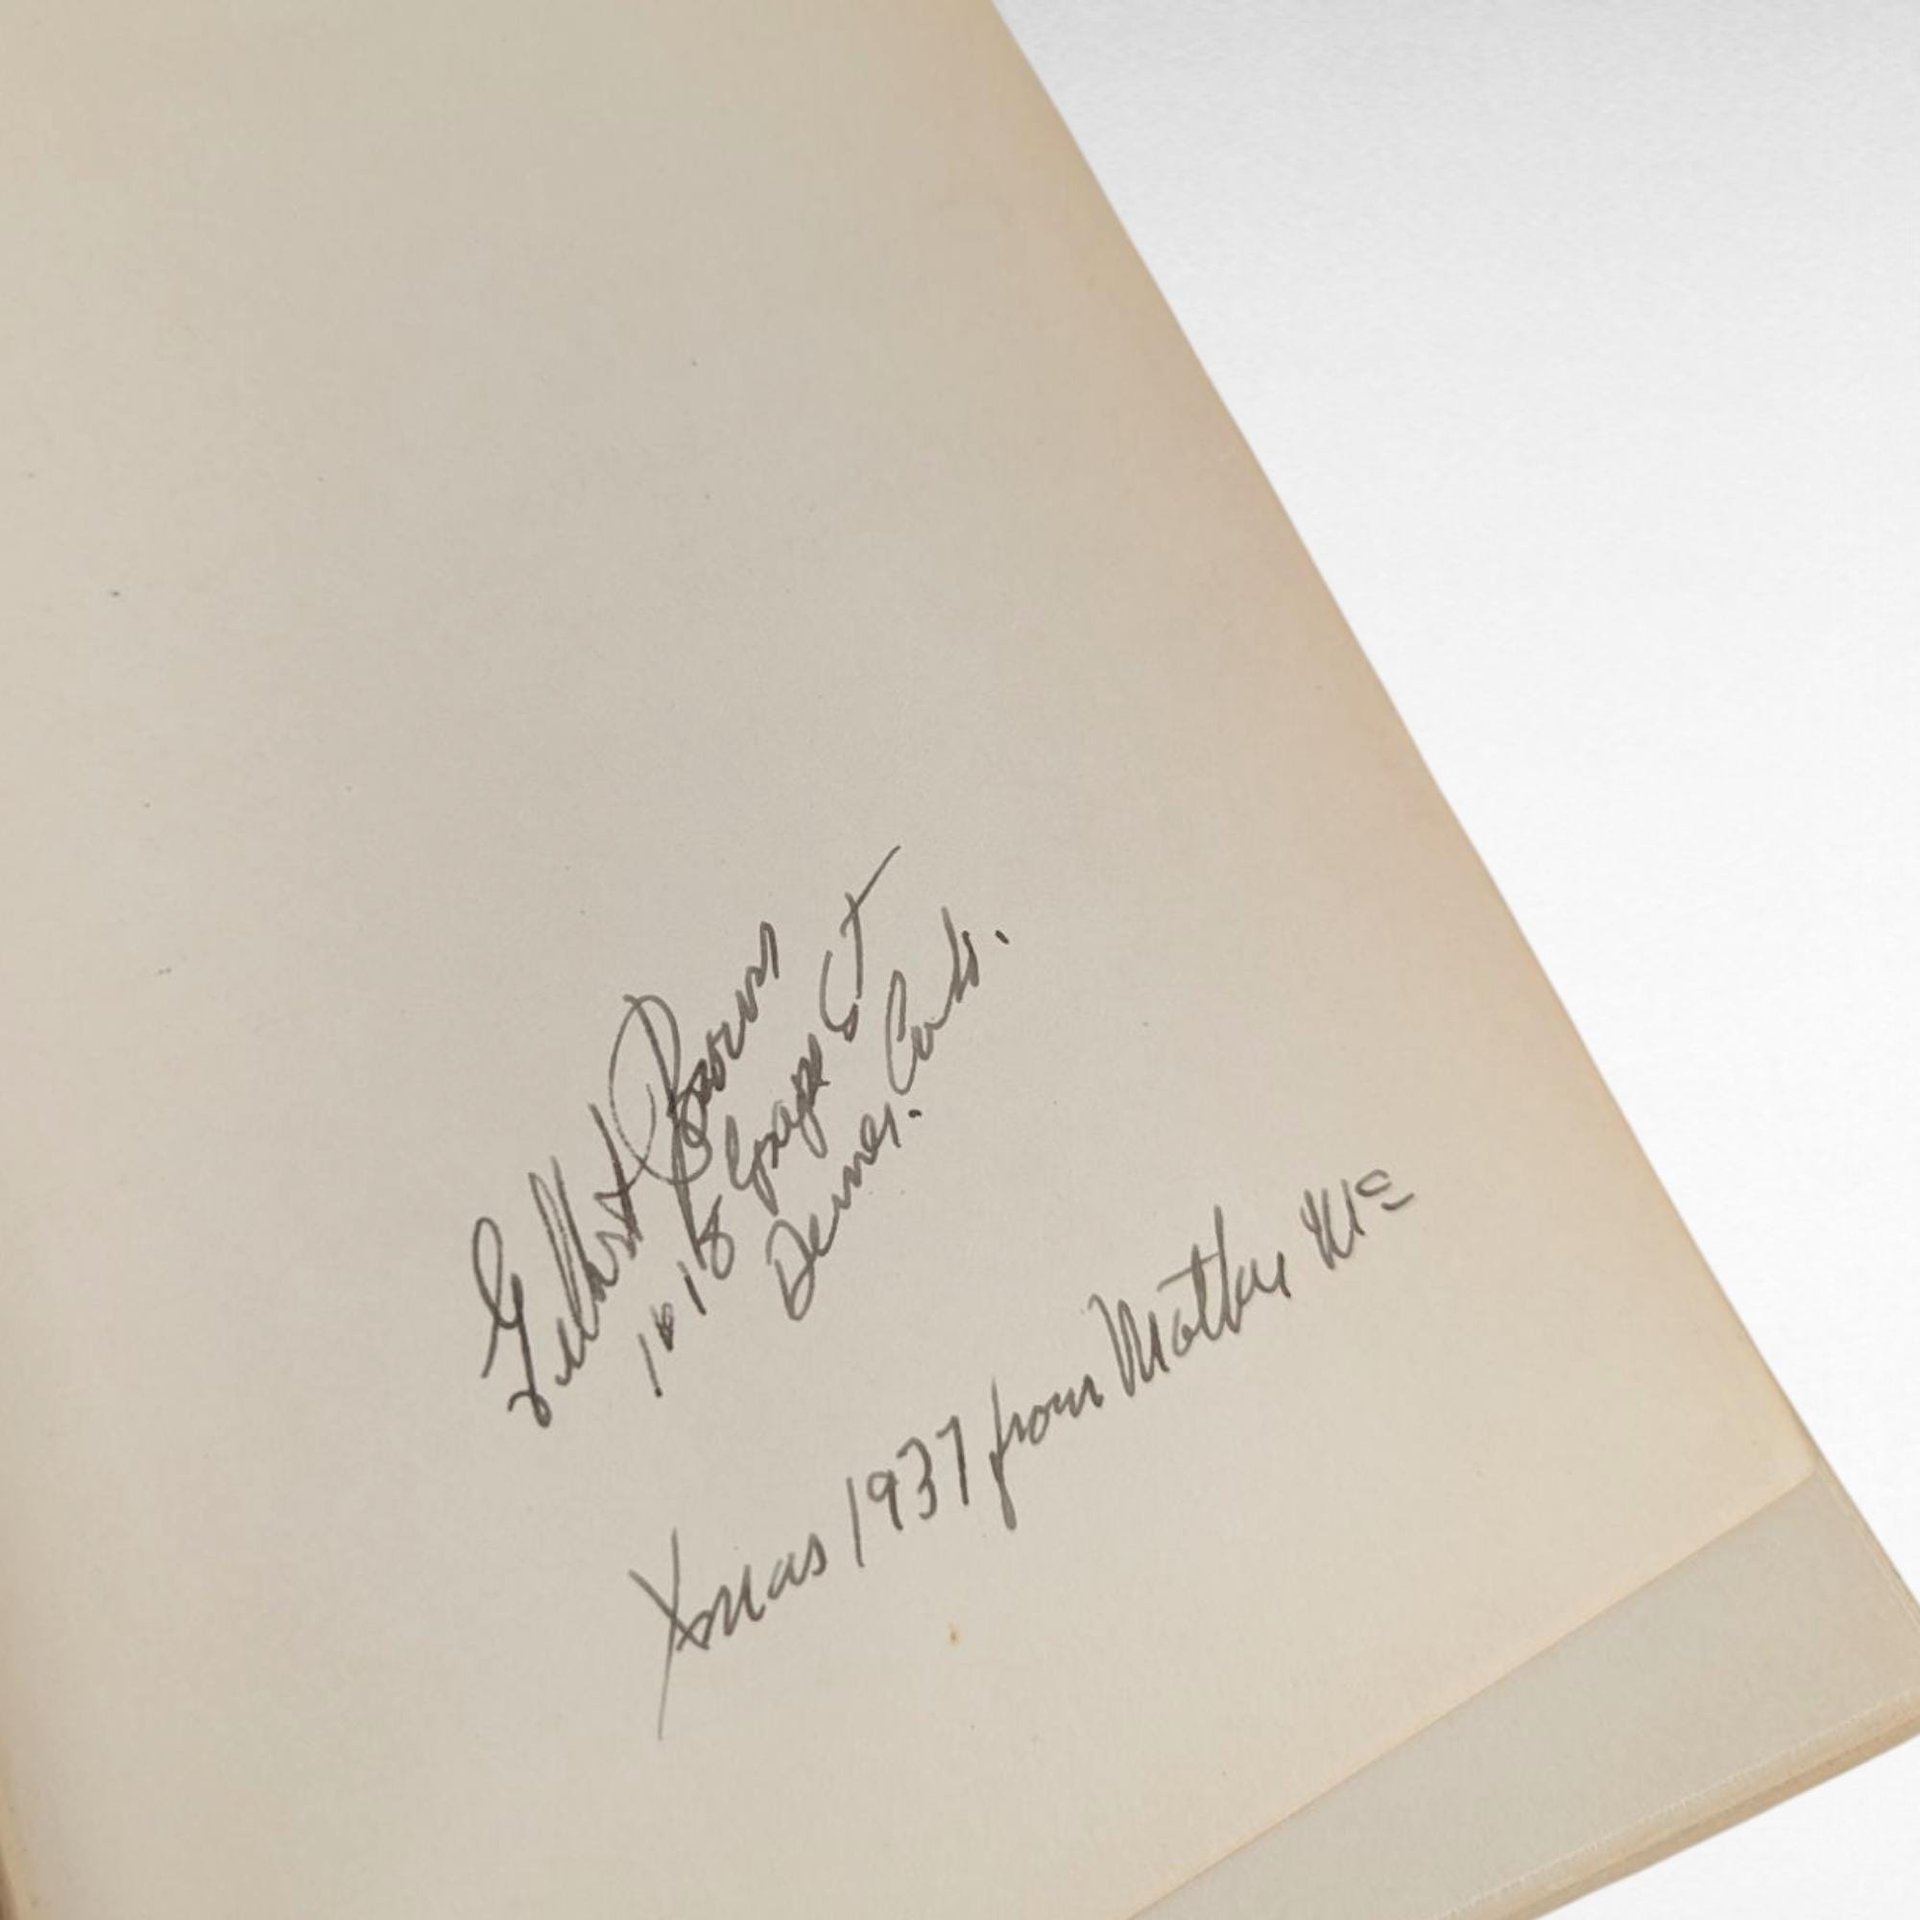 Gilbert Brown
1018 Gaylord St
Denver. Colo.
Xmas 1937 from Mother Mc